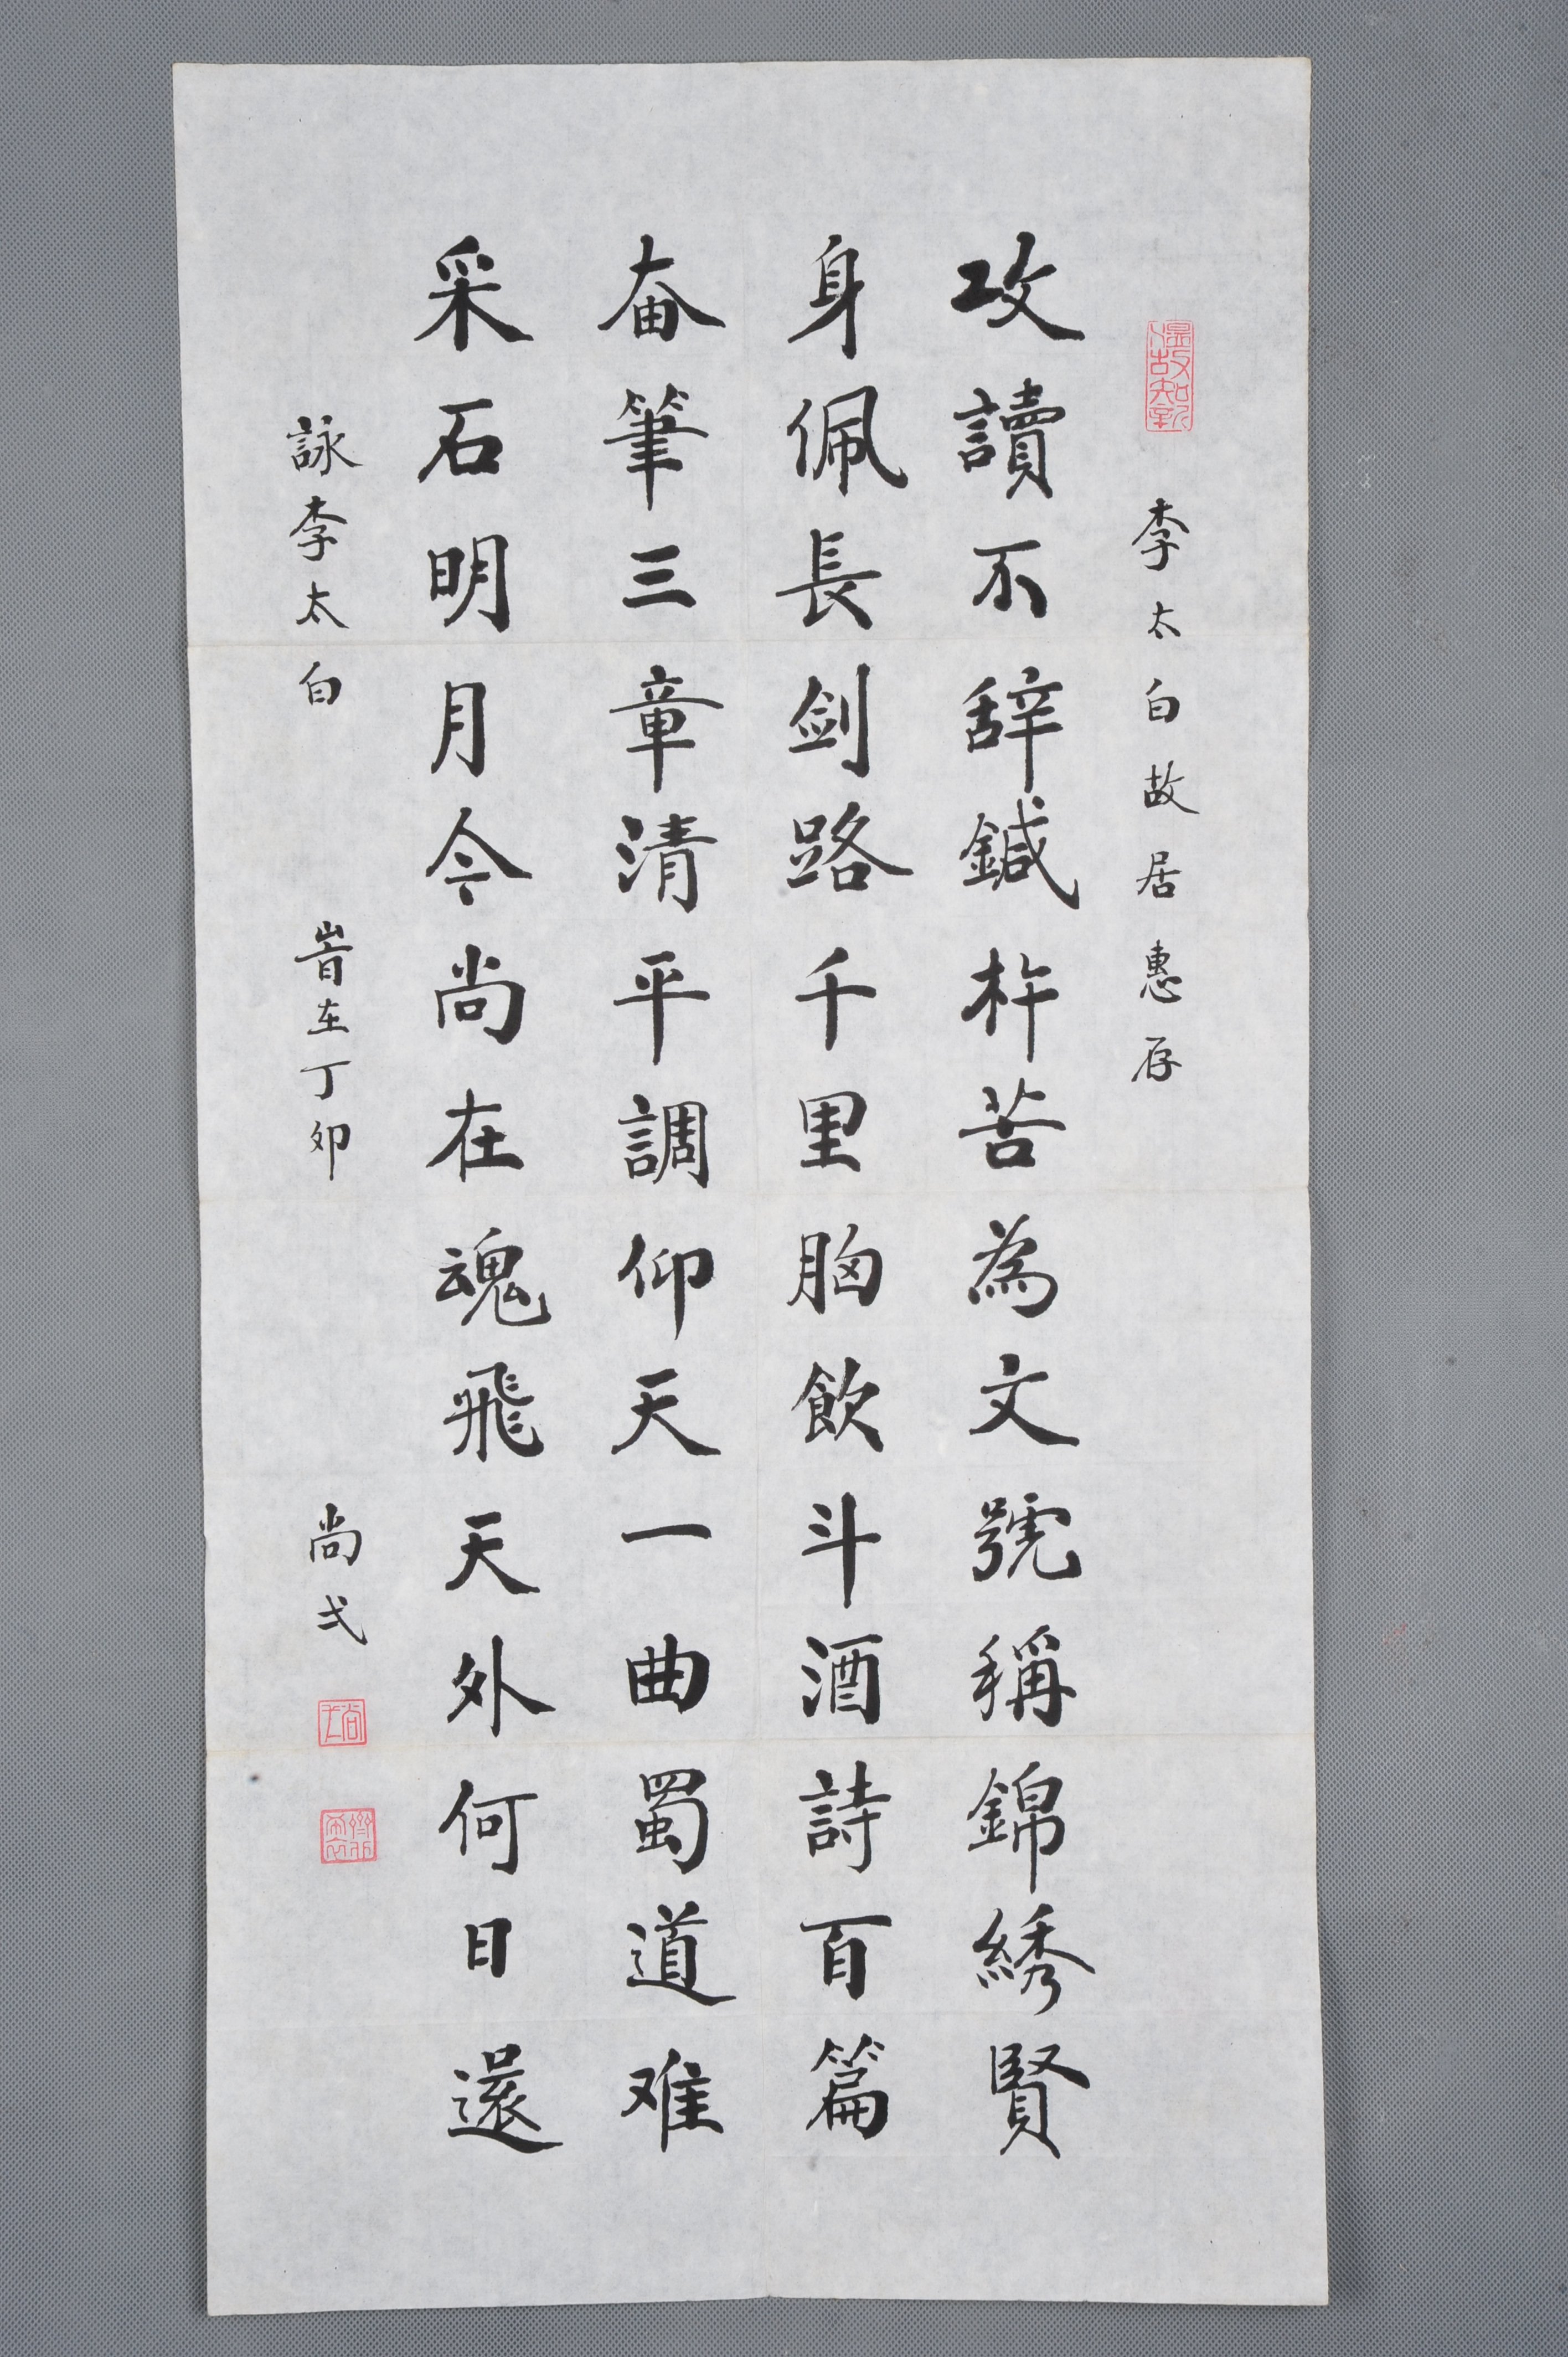 温故知新
李太白故居惠存
攻讀不辞鍼杵苦為文號稱錦綉賢
身佩長剑路千里胸飲斗酒詩百篇
奋筆三章清平調仰天一曲蜀道难
采石明月今尚在魂飛天外何日還
詠李太白 旹在丁卯 尚弌